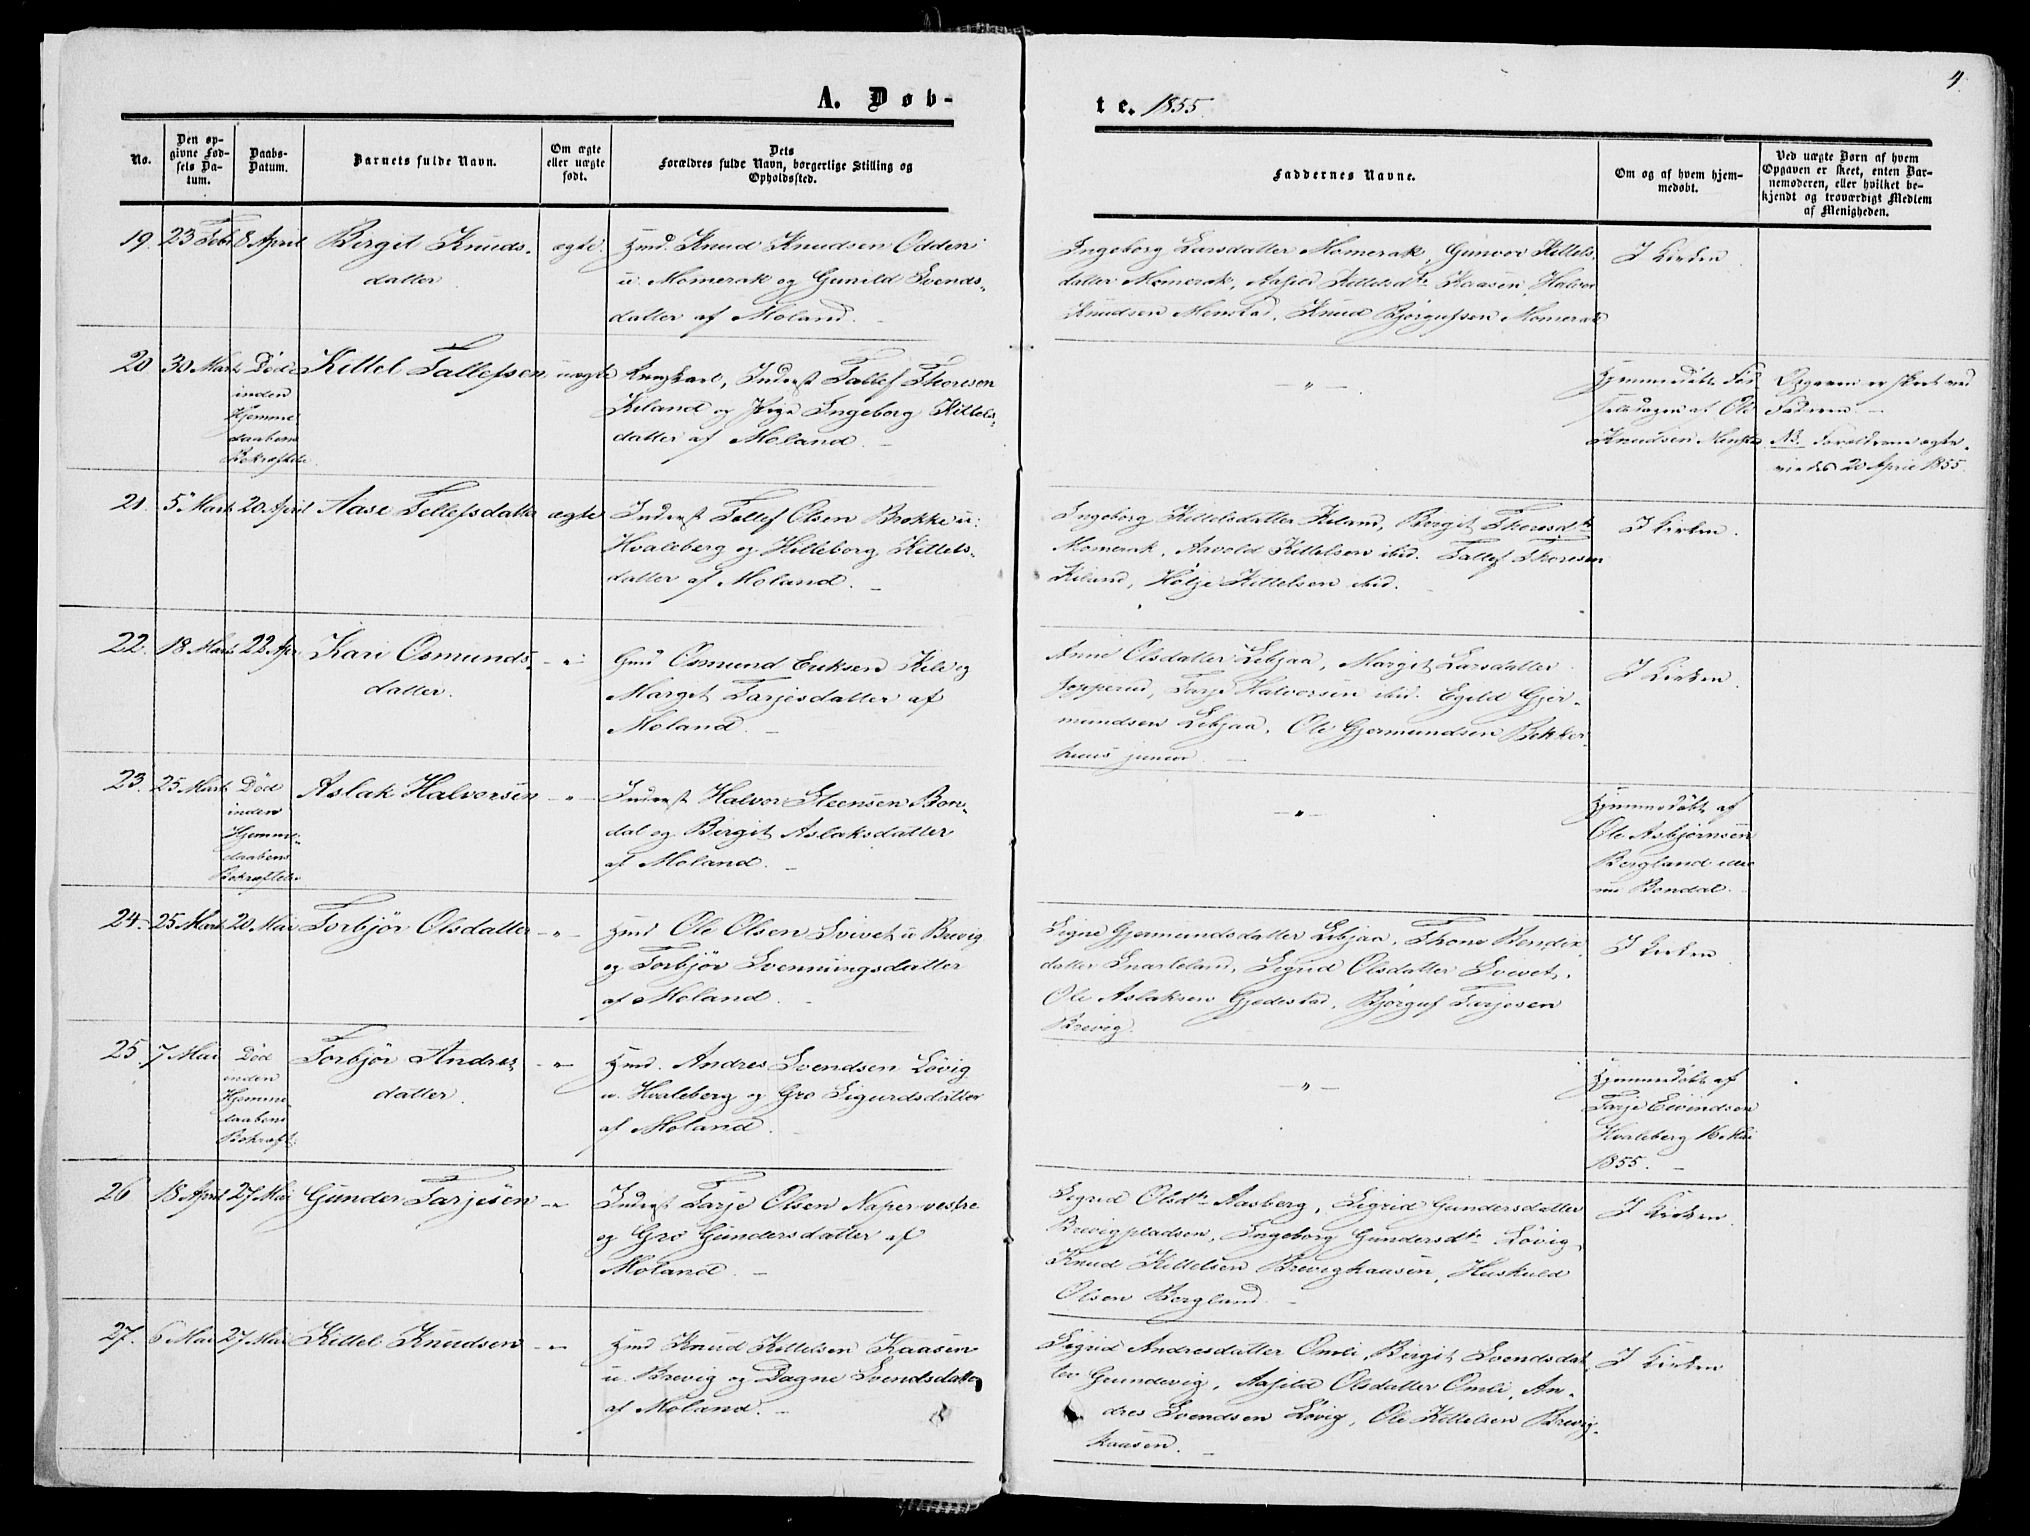 4.
A. Døb-
te. 1855.
No.
Den op-
givne Fød-
sels Da-
tum.
Daabs-
Datum.
Barnets fulde Navn.
Om ægte
eller uægte
født.
Dets
Forældres fulde Navn, borgerlige Stilling og
Opholdssted.
Faddernes Navne.
Om og af hvem hjem-
medøbt.
Ved uægte Børn af hvem
Opgaven er skeet, enten Bar-
nemoderen, eller hvilket be-
kjendt og troværdigt Medlem
af Menigheden.
19. 23 Febr 8 April Birgit Knuds-
datter.
ægte
Hmd. Knud Knudsen Odden
u. Momerak og Gunild Svends-
datter af Moland.
Ingeborg Larsdatter Momerak, Gunvor Kittels-
datter Momerak, Aasild Kittelsdtr Kaasen, Halvor
Knudsen Menstad, Knud Bjørgufsen Momerak
I Kirken.
20 30 Marts Død
inden
Hjemme
daabens
Bekræftelse.
Kittel Tallefsen
uægte
Ungkarl, Inderst Tallef Thoresen
Kiland og Pige Ingeborg Kittels-
datter af Moland.
— " —
Hjemmedøbt Fød-
selsdagen af Ole
Knudsen Menstad
Opgaven er skeet ved
Faderen.
NB. Forældrene ægte-
viede 20 April 1855.
21. 5 Marts 20 April Aase Tellefsdatter ægte
Inderst Tellef Olsen Brokke u:
Hvaleberg og Hilleborg Kittels-
datter af Moland.
Ingeborg Kittelsdatter Kiland, Birgit Thoresdtr
Momerak, Arvold Kittelsen ibid. Tallef Thoresen
Kiland, Hølje Kittelsen ibid.
I Kirken.
22. 18 Marts 22 Apr Kari Osmunds-
datter.
— " —
Gmd Osmund Eriksen Kile og
Margit Tarjesdatter af
Moland.
Anne Olsdatter Libjaa, Margit Larsdatter
Jopperud, Tarje Halvorsen ibid. Egild Gjer-
mundsen Libjaa, Ole Gjermundsen Bekker-
huus junior.
I Kirken.
23. 25 Marts Død
inden
Hjemme-
daabens
Bekræftelse
Aslak Halvorsen
— " —
Inderst Halvor Steensen Bon-
dal og Birgit Aslaksdatter
af Moland.
— " —
Hjemmedøbt af
Ole Asbjørnsen
Bergland eller
nu Bondal.
24. 25 Marts 20 Mai Torbjør Olsdatter
— " —
Hmd Ole Olsen Svivet u Brevig
og Torbjør Svenningsdatter
af Moland.
Signe Gjermundsdatter Libjaa, Thone Bendix-
datter Snarteland, Sigrid Olsdatter Svivet,
Ole Aslaksen Gjedestad, Bjørguf Terjesen
Brevig.
I Kirken.
25. 7 Mai Død
inden
Hjemme-
daabens
Bekræft:
Torbjør Andres-
datter.
— " —
Hmd. Andres Svendsen Løvig
u. Hvaleberg og Gro Sigurdsdatter
af Moland.
— " —
Hjemmedøbt af
Tarje Eivindsen
Hvaleberg 16 Mai
1855.
26 18 April 27 Mai Gunder Tarjesen
— " —
Inderst Tarje Olsen Naper vestre
og Gro Gundersdatter af
Moland.
Sigrid Olsdtr Aasberg, Sigrid Gundersdatter
Brevigpladsen, Ingeborg Gundersdtr Løvig,
Knud Kittelsen Brevigkaasen, Huskuld
Olsen Bergland.
I Kirken.
27. 6 Mai 27 Mai Kittel Knudsen
— " —
Hmd Knud Kittelsen Kaasen
u. Brevig og Dagne Svendsdatter
af Moland.
Sigrid Andresdatter Omli, Birgit Svendsdat-
ter Grundevig, Aasild Olsdatter Omli, An-
dres Svendsen Løvig, Ole Kittelsen Brevig-
kaasen.
I Kirken